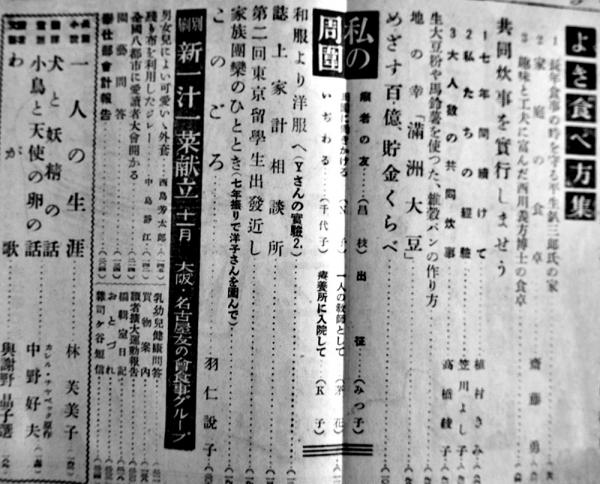 よき食べ方集
1 長年食事の時を守る平生釟三郎氏の家
2 家庭の食卓 齋藤勇
3 趣味と工夫に富んだ西川義方博士の食卓
共同炊事を實行しませう
1 七年間續けて 植村きみ
2 私たちの經驗 笠川よし子
3 大人數の共同炊事 高橋綾子
生大豆粉や馬鈴薯を使つた、雜穀パンの作り方
地の幸「滿洲大豆」
めざす百億、貯金くらべ
私の周圍
癩者の友(昌枝) 出征(みつ子)
いぢわる(千代子) 療養所に入院して(K子)
一人の教師として
和服より洋服へ(Yさんの實驗2.)
誌上家計相談所
第二回東京留學生出發近し
家族團欒のひととき(七年振りで洋子さんを圍んで)
このごろ 羽仁説子
別刷 新一汁一菜献立 十一月 大阪・名古屋友の會食事グループ
男女兒によい可愛い外套 西島芳太郎
殘り布を利用したジレー 中島靜江
全國八都市に愛讀者大會開かる
園藝問答
奉仕部會計報告
乳幼兒健康問答
買物案内
讀者擴大運動報告
編輯室日記
おとづれ
雜司ケ谷短信
一人の生涯 林芙美子
犬と妖精の話 カレル・チヤペック原作
小鳥と天使の卵の話 中野好夫
わが歌 與謝野晶子選